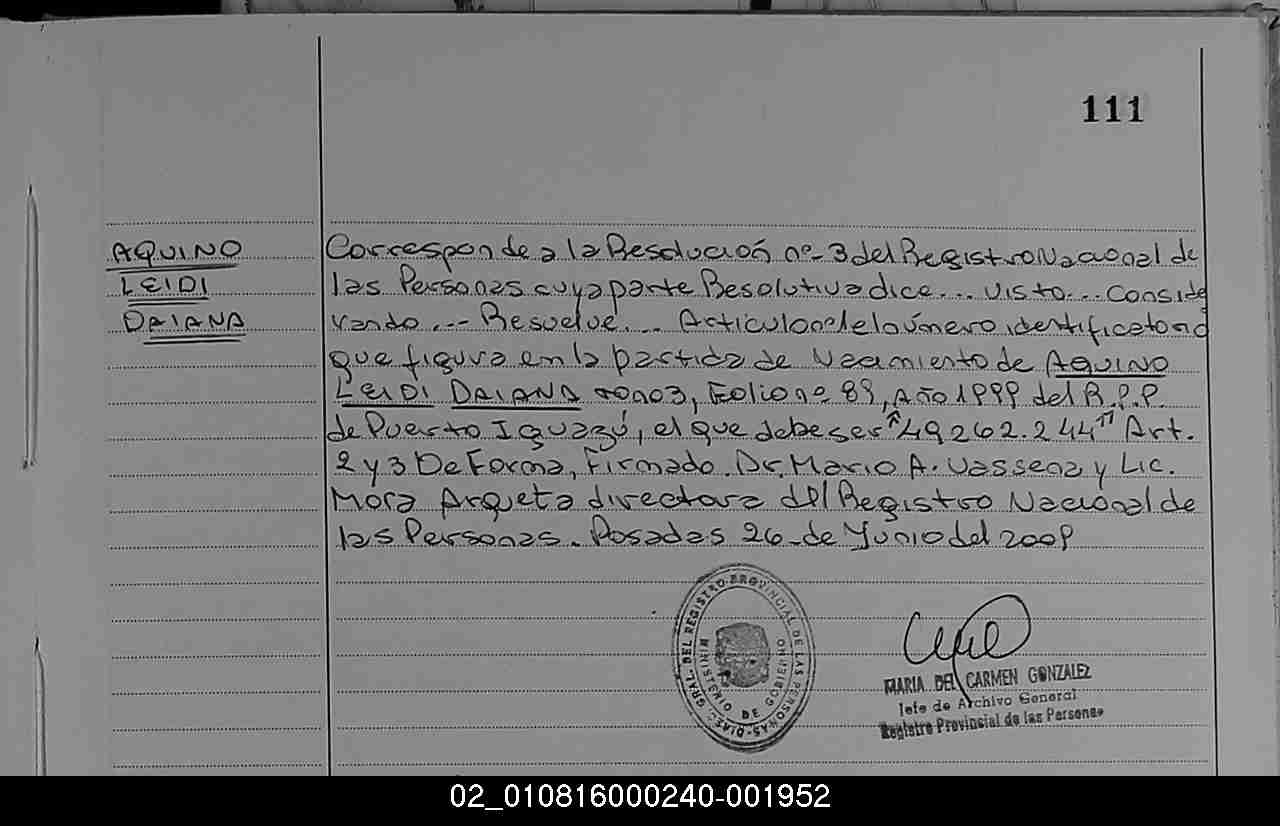 111
AQUINO
LEIDI
DAIANA
Corresponde a la Resolución nº-3 del Registro Nacional de
las Personas cuya parte Resolutiva dice... visto... Conside
rando... Resuelve... Articulo el número identificatorio
que figura en la partida de Nacimiento de AQUINO
LEIDI DAIANA tomo 3, Folio nº 89, Año 1999 del R.P.P.
de Puerto Iguazú, el que debe ser "49.262.244" Art.
2 y 3 De Forma, Firmado. Dr. Mario A. Vassena y Lic.
Mora Arqueta directora del Registro Nacional de
las Personas. Posadas 26 de Junio del 2009
DIREC. GRAL. DEL REGISTRO PROVINCIAL DE LAS PERSONAS
MINISTERIO DE GOBIERNO
MARIA DEL CARMEN GONZALEZ
Jefe de Archivo General
Registro Provincial de las Personas
02_010816000240-001952